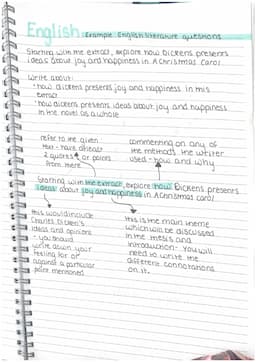 English Example: English literature questions
Starting with the extract, explore how Dickens presents
ideas about joy and happiness in A Christmas Carol
Write about:
• how Dickens presents joy and happiness in this
extract
• how Dickens presents ideas about joy and happiness
in the novel as a whole
refer to the given
text - have atleast
2 quotes or points
from there
commenting on any of
the methods the writer
used - how and why
Starting with the extract, explore how Dickens presents
ideas about joy and happiness in A Christmas Carol
this would include
Charles Dicken's
ideas and opinions
- you should
write down your
feeling for or
against a particular
point mentioned
this is the main theme
which will be discussed
in the thesis and
introduction- You will
need to write the
different connotations
on it.